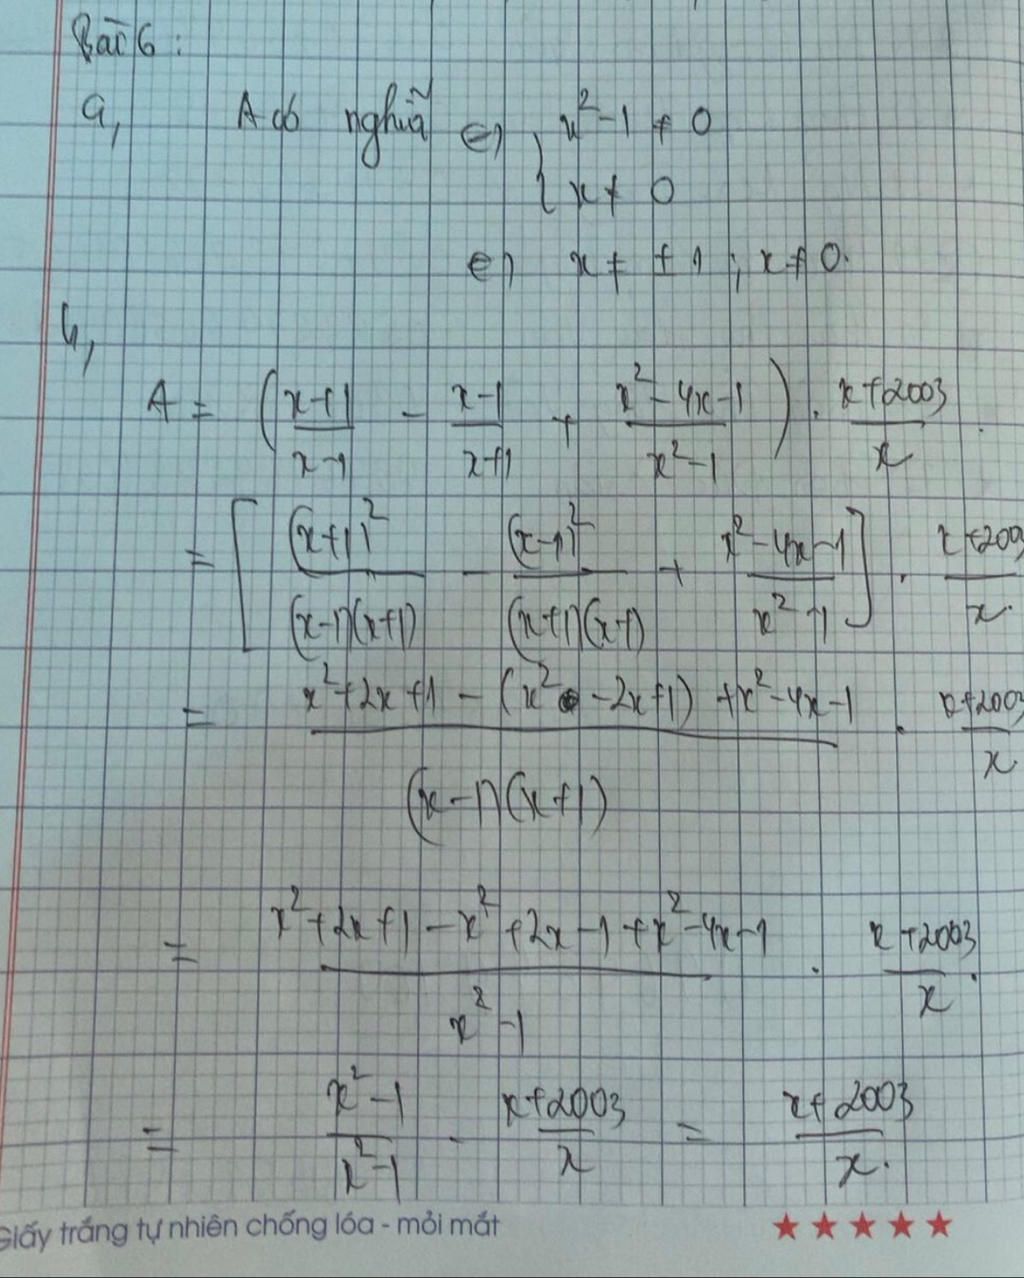 Bài 6 :
a, A có nghĩa ⇔ { x² - 1 ≠ 0
x ≠ 0
⇔ x ≠ ±1 ; x ≠ 0.
b,
A = ( (x+1)/(x-1) - (x-1)/(x+1) + (x² - 4x - 1)/(x² - 1) ) . (x+2003)/x
= [ (x+1)²/((x-1)(x+1)) - (x-1)²/((x+1)(x-1)) + (x² - 4x - 1)/(x² - 1) ] . (x+2003)/x.
= (x² + 2x + 1 - (x² - 2x + 1) + x² - 4x - 1)/((x-1)(x+1)) . (x+2003)/x.
= (x² + 2x + 1 - x² + 2x - 1 + x² - 4x - 1)/(x² - 1) . (x+2003)/x.
= (x² - 1)/(x² - 1) . (x+2003)/x = (x+2003)/x.
Giấy trắng tự nhiên chống lóa - mỏi mắt ★★★★★